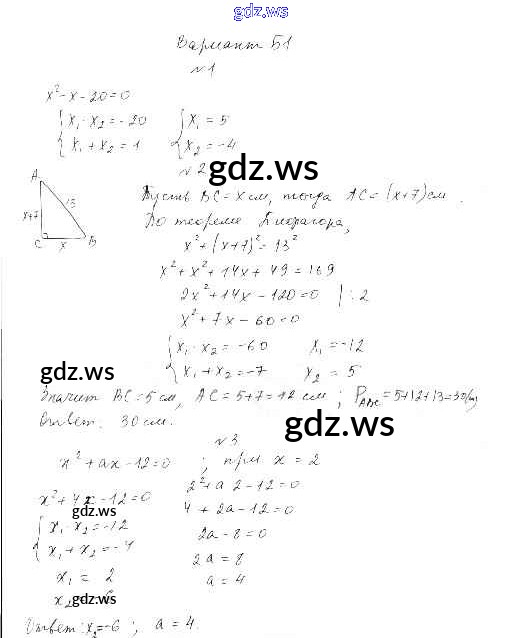 gdz.ws
Вариант Б1
№1
x²-x-20=0
x₁·x₂=-20
x₁+x₂=1
x₁=5
x₂=-4
№2
gdz.ws
A
x+7
13
C
x
B
Пусть BC=x см, тогда AC=(x+7) см.
По теореме Пифагора,
x²+(x+7)²=13²
x²+x²+14x+49=169
2x²+14x-120=0 |:2
x²+7x-60=0
x₁·x₂=-60 x₁=-12
x₁+x₂=-7 x₂=5
gdz.ws
Значит BC=5 см, AC=5+7=12 см; P_ABC=5+12+13=30(см)
Ответ: 30 см.
gdz.ws
№3
x²+ax-12=0; при x=2
2²+a·2-12=0
x²+4x-12=0
4+2a-12=0
gdz.ws
x₁·x₂=-12
2a-8=0
x₁+x₂=-4
2a=8
x₁=2
a=4
gdz.ws
Ответ: x₂=-6; a=4.